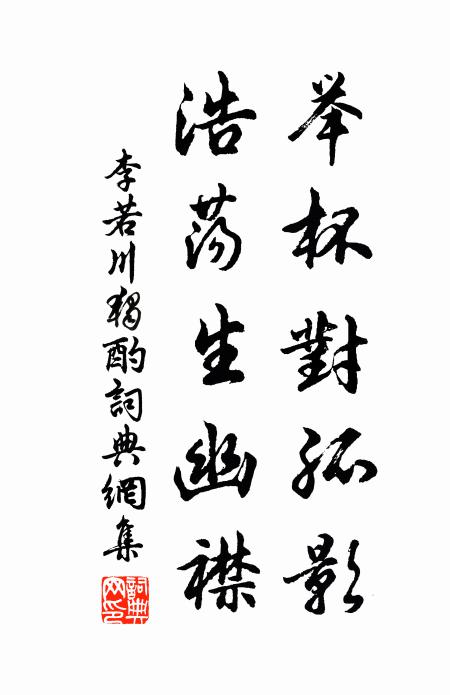 举杯對孤影
浩荡生幽襟
李若川獨酌詞典網集
詞典网印